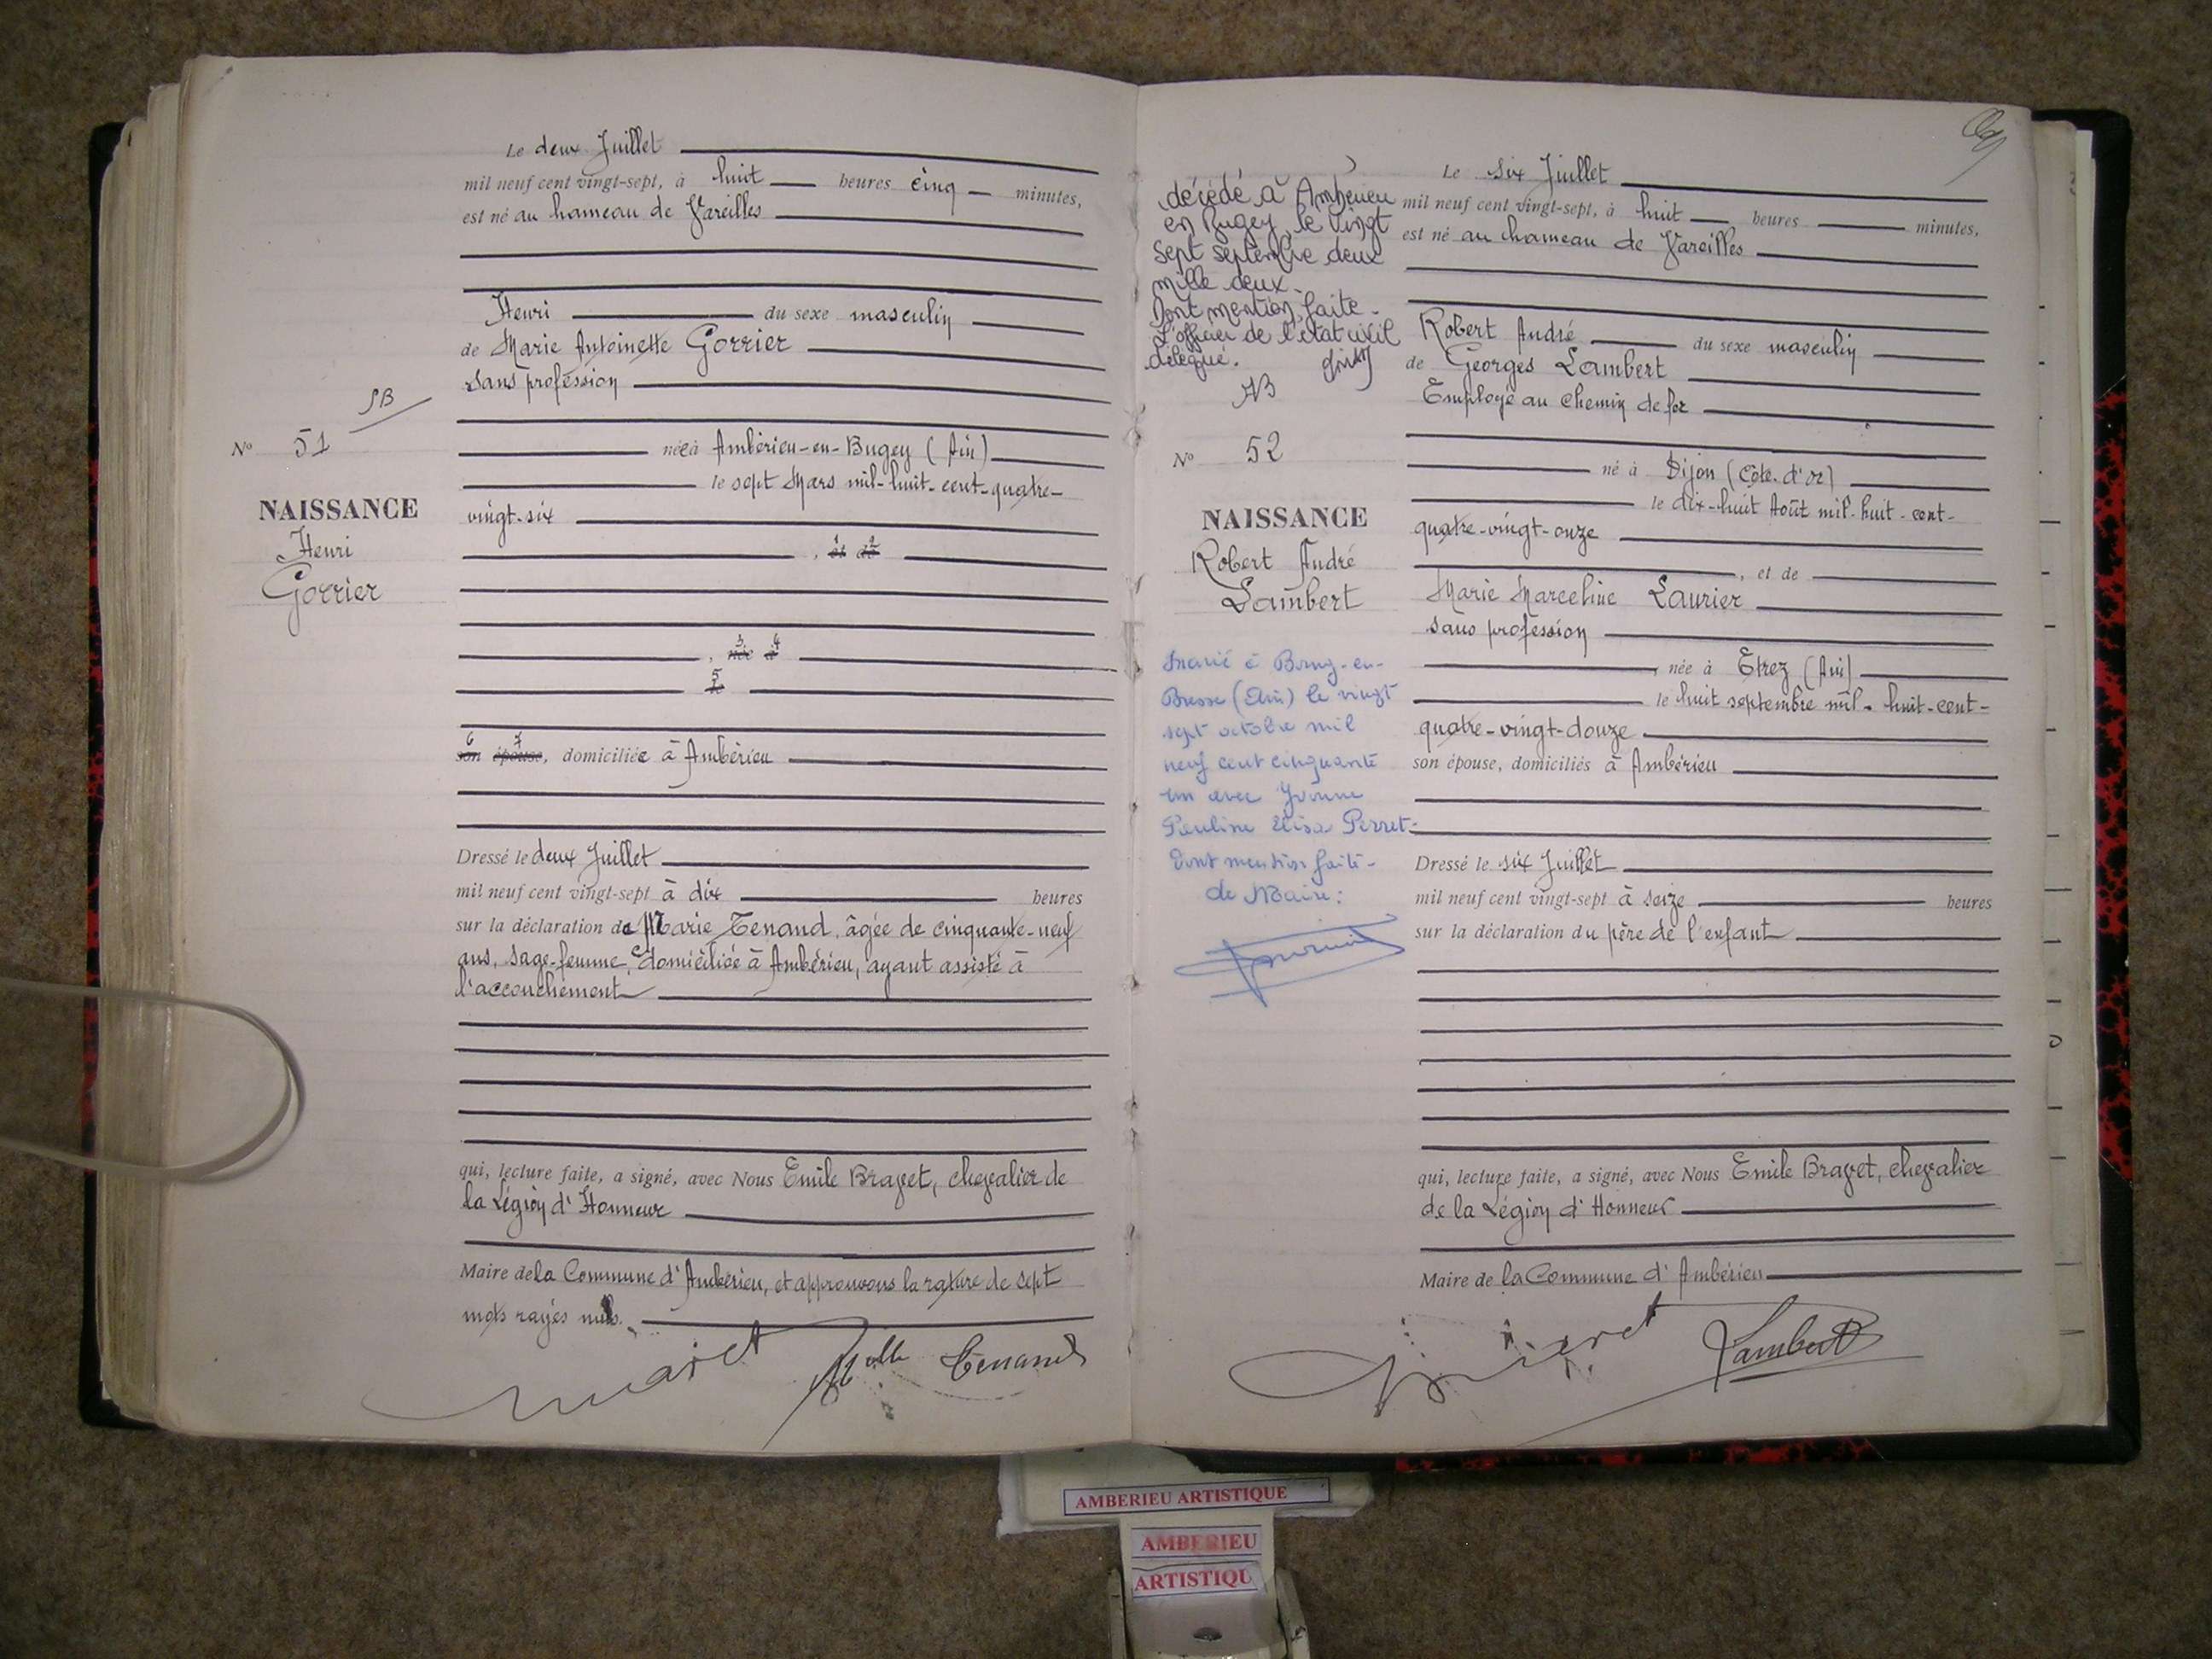 Le deux Juillet
mil neuf cent vingt-sept, à huit heures cinq minutes,
est né au hameau de Vareilles
Henri du sexe masculin
de Marie Antoinette Gorrier
sans profession
née à Ambérieu-en-Bugey (Ain)
le sept Mars mil-huit-cent-quatre-
vingt-six
1 2
, et de
3 4
, née à
5
le
6 7
son épouse, domiciliée à Ambérieu
Dressé le deux Juillet
mil neuf cent vingt-sept à dix heures
sur la déclaration de Marie Tenand, âgée de cinquante-neuf
ans, sage-femme, domiciliée à Ambérieu, ayant assisté à
l'accouchement
qui, lecture faite, a signé, avec Nous Emile Bravet, chevalier de
la Légion d'Honneur
Maire de la Commune d'Ambérieu, et approuvons la rature de sept
mots rayés nuls.
Tenand
N° 51
NAISSANCE
Henri
Gorrier
décédé à Ambérieu
en Bugey, le vingt
sept septembre deux
mille deux.
Dont mention faite.
L'officier de l'état civil
délégué.
N° 52
NAISSANCE
Robert André
Lambert
Marié à Bourg-en-
Bresse (Ain) le vingt
sept octobre mil
neuf cent cinquante
un avec Yvonne
Pauline Elisa Perret.
Dont mention faite.
Le Maire:
Le six Juillet
mil neuf cent vingt-sept, à huit heures minutes,
est né au hameau de Vareilles
Robert André du sexe masculin
de Georges Lambert
Employé au chemin de fer
né à Dijon (Côte-d'or)
le dix-huit Août mil-huit-cent-
quatre-vingt-onze
, et de
Marie Marceline Laurier
sans profession
, née à Etrez (Ain)
le huit septembre mil-huit-cent-
quatre-vingt-douze
son épouse, domiciliés à Ambérieu
Dressé le six Juillet
mil neuf cent vingt-sept à seize heures
sur la déclaration du père de l'enfant
qui, lecture faite, a signé, avec Nous Emile Bravet, chevalier
de la Légion d'Honneur
Maire de la Commune d'Ambérieu
Lambert
AMBERIEU ARTISTIQUE
AMBERIEU
ARTISTIQU